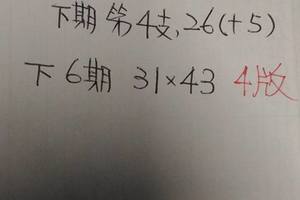 下期第4支,26(+5)
下6期 31×43 4版